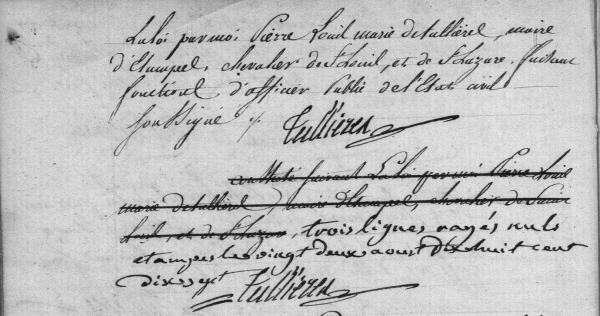 La loi par moi Pierre Louis marie de tullieres, maire
d'Etampes, chevalier de St Louis, et de St Lazare. faisant
fonctions d'officier Public de l'Etat civil
Soussigné ./.
Tullieres
constaté suivant La Loi par moi Pierre Louis
marie de tullieres, maire d'Etampes, chevalier de Saint
Louis, et de St Lazare, trois lignes rayés nuls
etampes le vingt deux aoust dix huit cent
dix sept
Tullieres